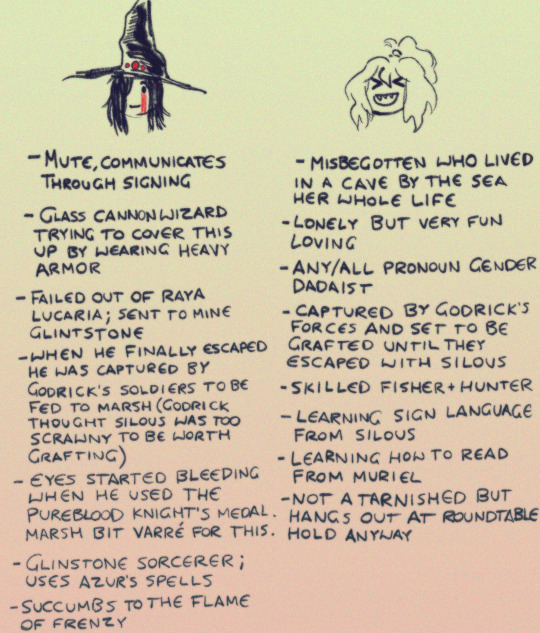 - MUTE, COMMUNICATES
THROUGH SIGNING
- GLASS CANNON WIZARD
TRYING TO COVER THIS
UP BY WEARING HEAVY
ARMOR
- FAILED OUT OF RAYA
LUCARIA; SENT TO MINE
GLINTSTONE
- WHEN HE FINALLY ESCAPED
HE WAS CAPTURED BY
GODRICK'S SOLDIERS TO BE
FED TO MARSH (GODRICK
THOUGHT SILOUS WAS TOO
SCRAWNY TO BE WORTH
GRAFTING)
- EYES STARTED BLEEDING
WHEN HE USED THE
PUREBLOOD KNIGHT'S MEDAL.
MARSH BIT VARRÉ FOR THIS.
- GLINSTONE SORCERER;
USES AZUR'S SPELLS
- SUCCUMBS TO THE FLAME
OF FRENZY
- MISBEGOTTEN WHO LIVED
IN A CAVE BY THE SEA
HER WHOLE LIFE
- LONELY BUT VERY FUN
LOVING
- ANY/ALL PRONOUN GENDER
DADAIST
- CAPTURED BY GODRICK'S
FORCES AND SET TO BE
GRAFTED UNTIL THEY
ESCAPED WITH SILOUS
- SKILLED FISHER + HUNTER
- LEARNING SIGN LANGUAGE
FROM SILOUS
- LEARNING HOW TO READ
FROM MURIEL
- NOT A TARNISHED BUT
HANGS OUT AT ROUNDTABLE
HOLD ANYWAY